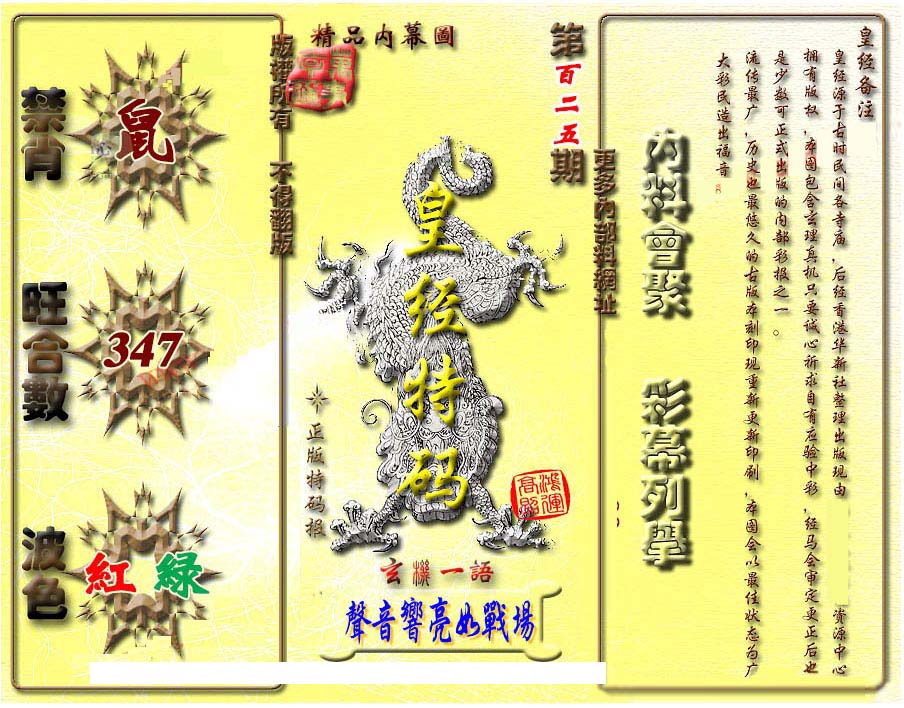 精品内幕圖
第百二五期
版權所有 不得翻版
更多內部料網址
禁肖
鼠
旺合數
347
波色
紅 綠
皇经特码
※正版特码报
鸿運高照
玄機一語
聲音響亮如戰場
内料會聚 彩幕列舉
皇经备注
皇经源于古时民间各寺庙，后经香港华新社整理出版现由 资源中心
拥有版权，本图包含玄理真机只要诚心祈求自有应验中彩，经马会审定更正后也
是少数可正式出版的内部彩报之一。
流传最广，历史也最悠久的古版本刻印现重新更新印刷，本图会以最佳状态为广
大彩民造出福音